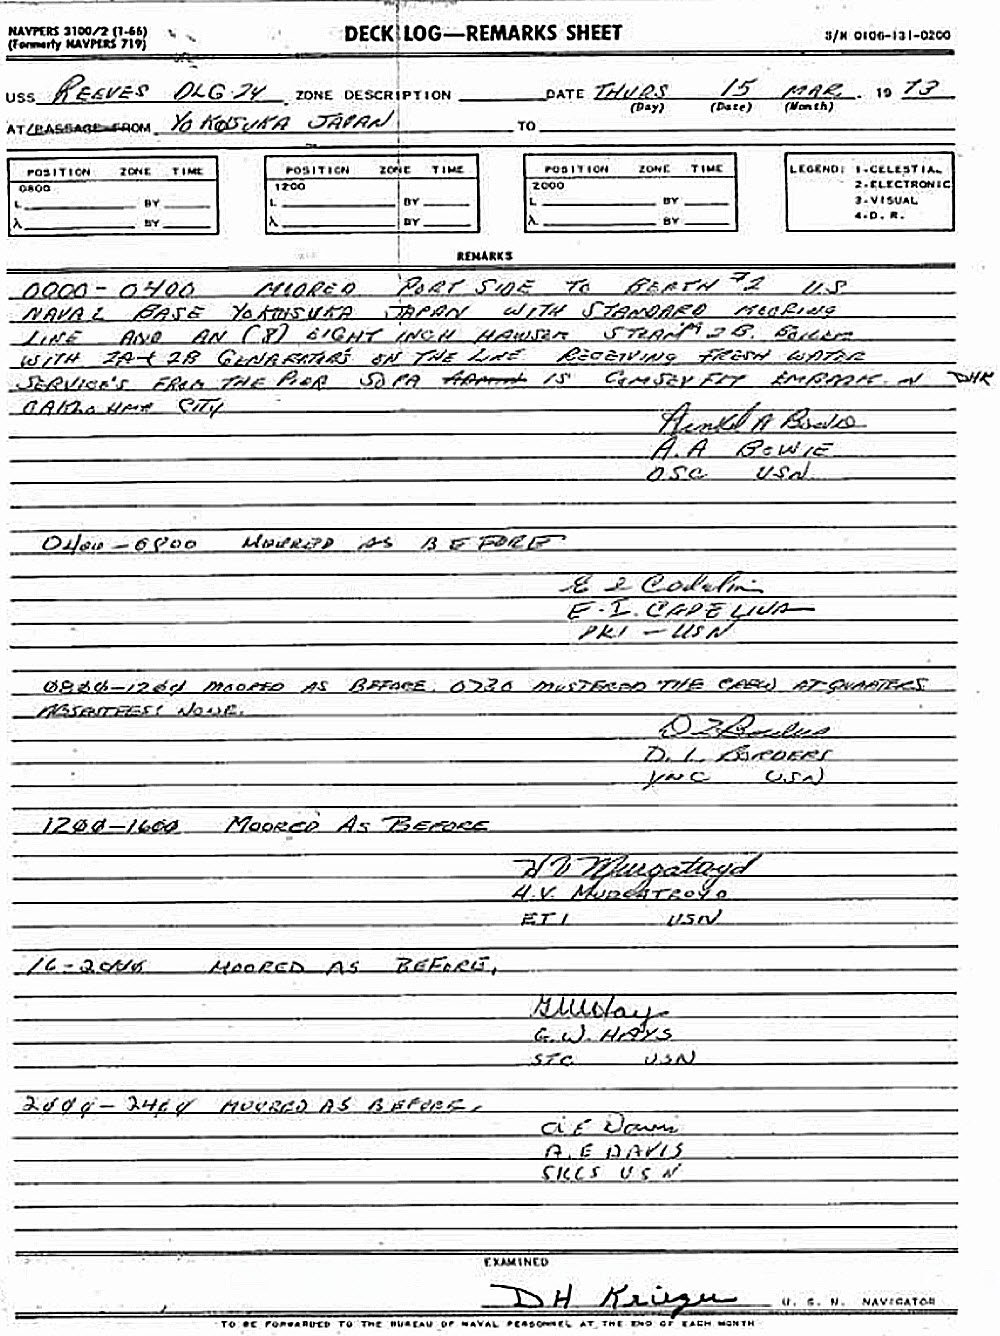 NAVPERS 3100/2 (1-66)
(Formerly NAVPERS 719)
DECK LOG—REMARKS SHEET
S/N 0106-131-0200
USS REEVES DLG-24 ZONE DESCRIPTION DATE THURS 15 MAR. 19 73
(Day) (Date) (Month)
AT/PASSAGE FROM YOKOSUKA JAPAN TO
POSITION ZONE TIME
0800
L BY
λ BY
POSITION ZONE TIME
1200
L BY
λ BY
POSITION ZONE TIME
2000
L BY
λ BY
LEGEND: 1-CELESTIAL
2-ELECTRONIC
3-VISUAL
4-D. R.
REMARKS
0000-0400 MOORED PORT SIDE TO BERTH #2 U.S.
NAVAL BASE YOKOSUKA JAPAN WITH STANDARD MOORING
LINE AND AN (8) EIGHT INCH HAWSER STEAM 2B. BOILER
WITH 2A & 2B GENARATORS ON THE LINE RECEIVING FRESH WATER
SERVICE'S FROM THE PIER SOPA IS COMSEVFLT EMBARK DHK
OAKLAHMA CITY
A. A BOWIE
OSC USN
0400-0800 MOORED AS BEFORE
E. I. CAPELINA
PK1 - USN
0800-1200 MOORED AS BEFORE. 0730 MUSTERED THE CREW AT QUARTERS
ABSENTEES: NONE.
D. L. BORDERS
YNC USN
1200-1600 MOORED AS BEFORE
H V Murgatroyd
H.V. MURGATROYD
ET1 USN
16-2000 MOORED AS BEFORE.
G W Hays
G. W. HAYS
STC USN
2000-2400 MOORED AS BEFORE.
A E Davis
A. E DAVIS
USN
EXAMINED
DH Krieger U. S. N. NAVIGATOR
TO BE FORWARDED TO THE BUREAU OF NAVAL PERSONNEL AT THE END OF EACH MONTH